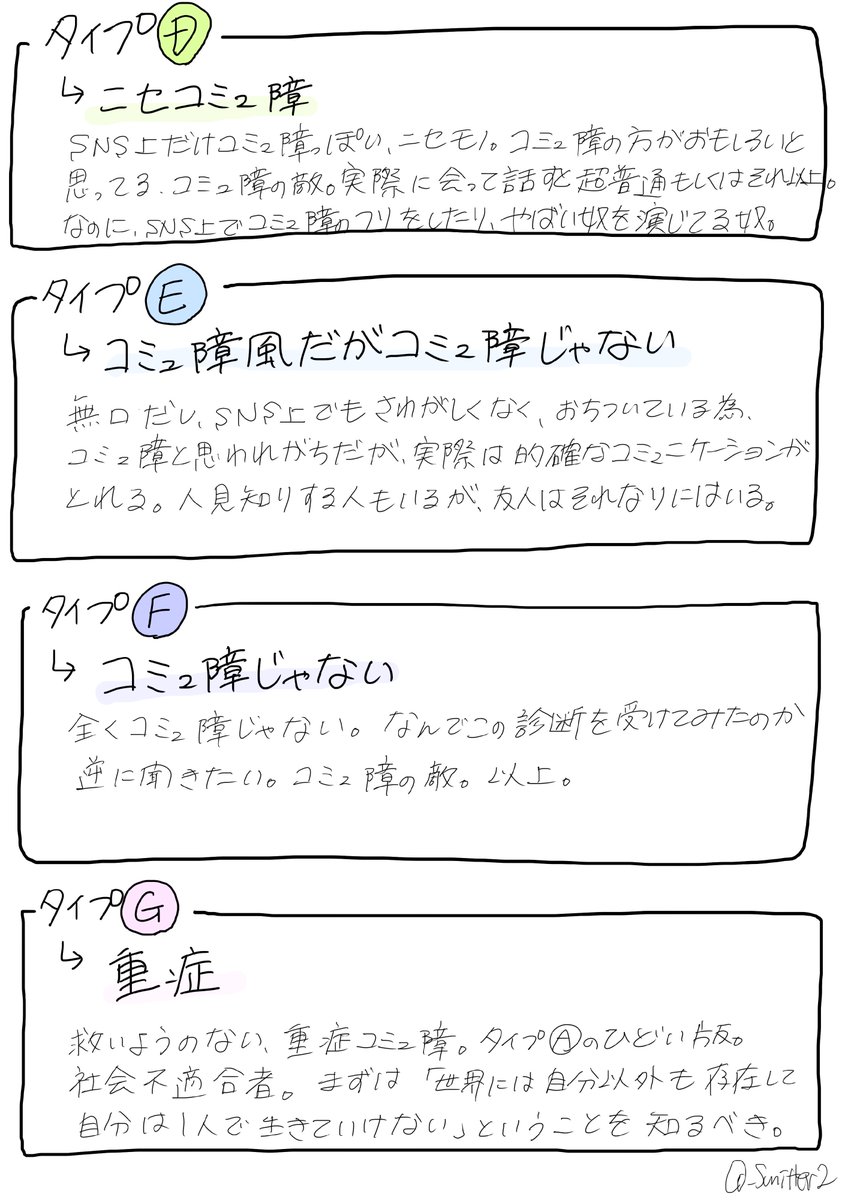 タイプD
↳ニセコミュ障
SNS上だけコミュ障っぽい、ニセモノ。コミュ障の方がおもしろいと
思ってる、コミュ障の敵。実際に会って話すと超普通もしくはそれ以上。
なのに、SNS上でコミュ障のフリをしたり、やばい奴を演じてる奴。
タイプE
↳コミュ障風だがコミュ障じゃない
無口だし、SNS上でもさわがしくなく、おちついている為、
コミュ障と思われがちだが、実際は的確なコミュニケーションが
とれる。人見知りする人もいるが、友人はそれなりにはいる。
タイプF
↳コミュ障じゃない
全くコミュ障じゃない。なんでこの診断を受けてみたのか
逆に聞きたい。コミュ障の敵。以上。
タイプG
↳重症
救いようのない、重症コミュ障。タイプⒶのひどい版。
社会不適合者。まずは「世界には自分以外も存在して
自分は1人で生きていけない」ということを知るべき。